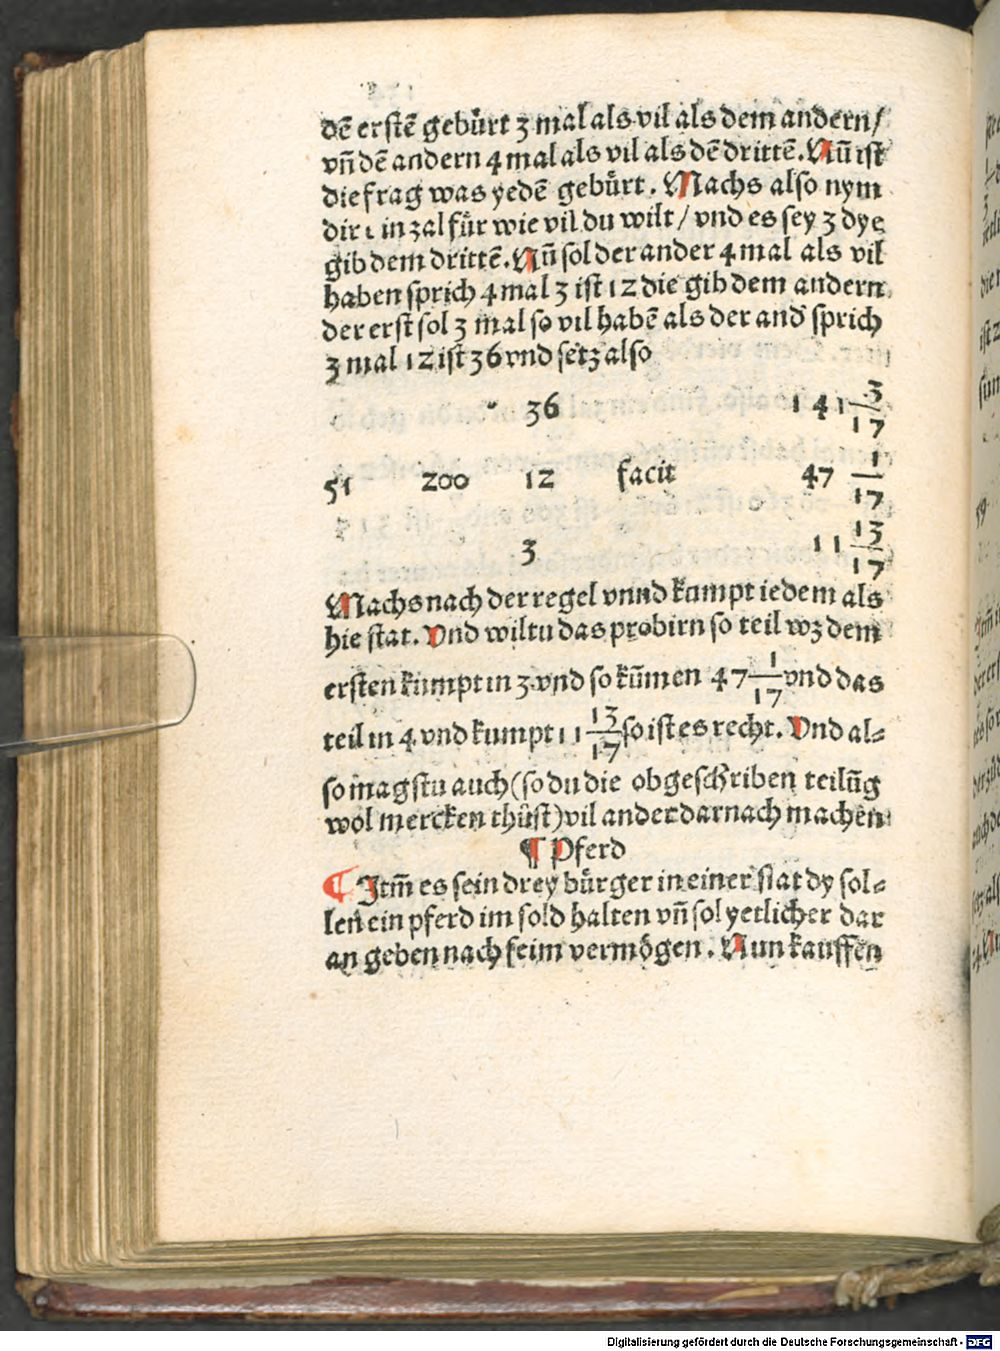 dē erstē gebürt 3 mal als vil als dem andern/
vn̄ dē andern 4 mal als vil als dē drittē. Nū ist
die frag was yedē gebürt. Machs also nym
dir ein zal für wie vil du wilt / vnd es sey 3 dye
gib dem drittē. Nū sol der ander 4 mal als vil
haben sprich 4 mal 3 ist 12 die gib dem andern
der erst sol 3 mal so vil habē als der and̄ sprich
3 mal 12 ist 36 vnd setz also
36 141 3/17
51 200 12 facit 47 1/17
3 11 13/17
Machs nach der regel vnnd kumpt iedem als
hie stat. Vnd wiltu das probirn so teil wz dem
ersten kumpt in 3 vnd so kūmen 47 1/17 vnd das
teil in 4 vnd kumpt 11 13/17 so ist es recht. Vnd al⸗
so magstu auch (so du die obgeschriben teilūg
wol mercken thůst) vil ander darnach machen
¶ Pferd
¶ Itm̄ es sein drey bürger in einer stat dy sol⸗
len ein pferd im sold halten vn̄ sol yetlicher dar
an geben nach seim vermögen. Nun kauffen
Digitalisierung gefördert durch die Deutsche Forschungsgemeinschaft - DFG